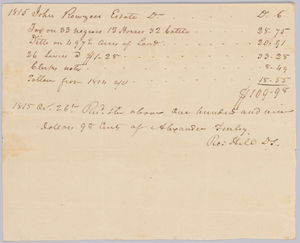 1815 John Rawzees Estate Dr D. C
Tax on 33 negroes 12 Horses 32 Cattle 28.75
Ditto on 4972 Acres of Land 28.91
26 Levies @ $1.28 33.28
Clerks notes 8.49
Tallow from 1814
$109.98
1815 Oct. 26th Recd the above one hundred and nine
dollars 98 Cents of Alexander Finley
Ro: Hill D.S.